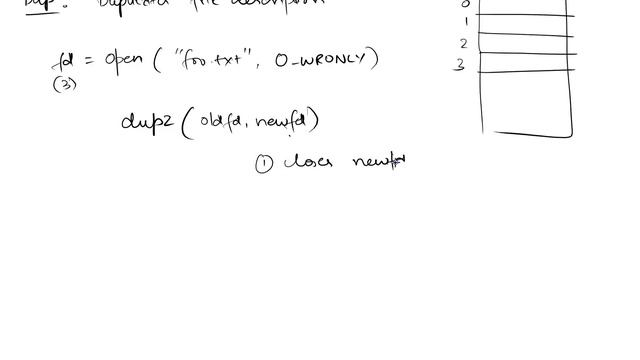 Dup: Duplicate file descriptor
fd = open ( "foo.txt", O_WRONLY)
(3)
dup2 ( oldfd, newfd)
① closes newfd
0
1
2
3